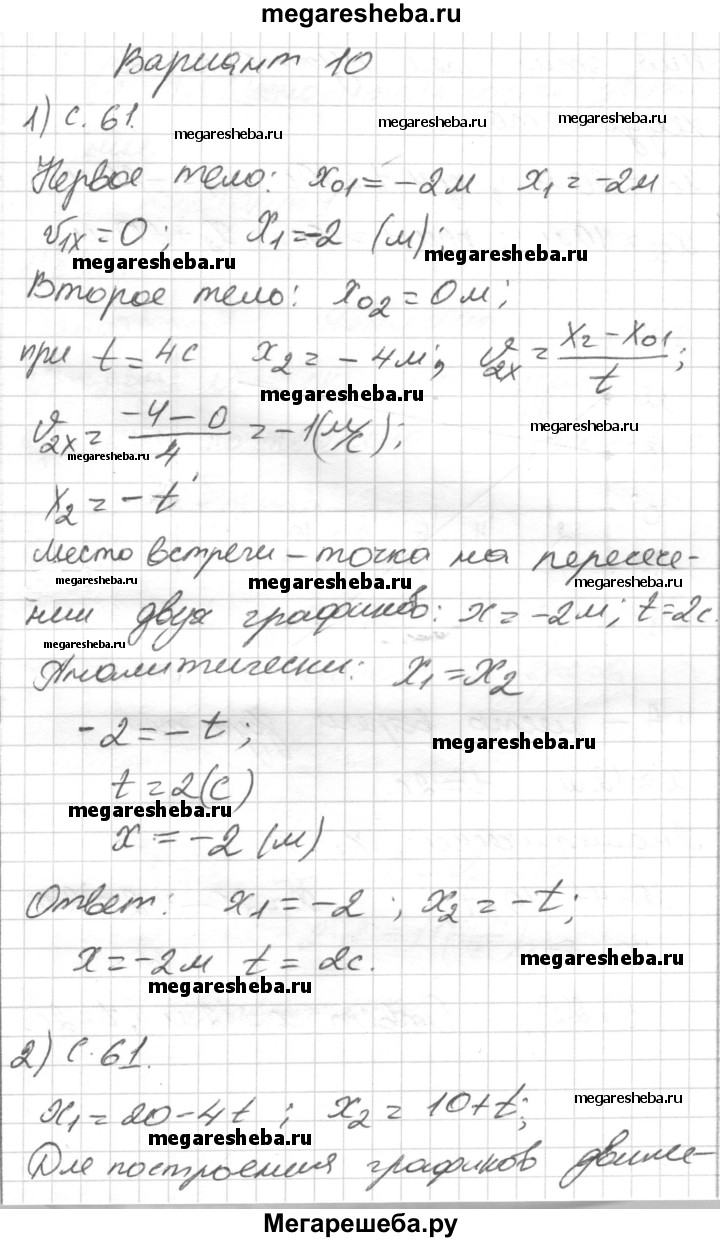 megaresheba.ru
Вариант 10
1) с. 61.
megaresheba.ru megaresheba.ru megaresheba.ru
Первое тело: x01 = -2м x1 = -2м
v1x = 0; x1 = -2 (м);
megaresheba.ru megaresheba.ru
Второе тело: x02 = 0м;
при t = 4с x2 = -4м; v2x = (x2 - x01)/t;
megaresheba.ru
v2x = (-4 - 0)/4 = -1(м/с);
megaresheba.ru megaresheba.ru
x2 = -t
Место встречи - точка на пересече-
megaresheba.ru megaresheba.ru megaresheba.ru
нии двух графиков: x = -2м; t = 2с.
megaresheba.ru
Аналитически: x1 = x2
-2 = -t;
megaresheba.ru
t = 2(с)
megaresheba.ru
x = -2 (м)
Ответ: x1 = -2; x2 = -t;
x = -2м t = 2с.
megaresheba.ru megaresheba.ru
2) с. 61.
x1 = 20 - 4t; x2 = 10 + t;
megaresheba.ru megaresheba.ru
Для построения графиков движе-
Мегарешеба.ру